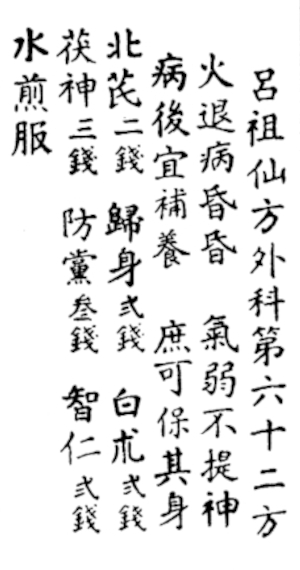 呂祖仙方外科第六十二方
火退病昏昏　氣弱不提神
病後宜補養　庶可保其身
北芪二錢　歸身弍錢　白朮弍錢
茯神三錢　防黨叁錢　智仁弍錢
水煎服